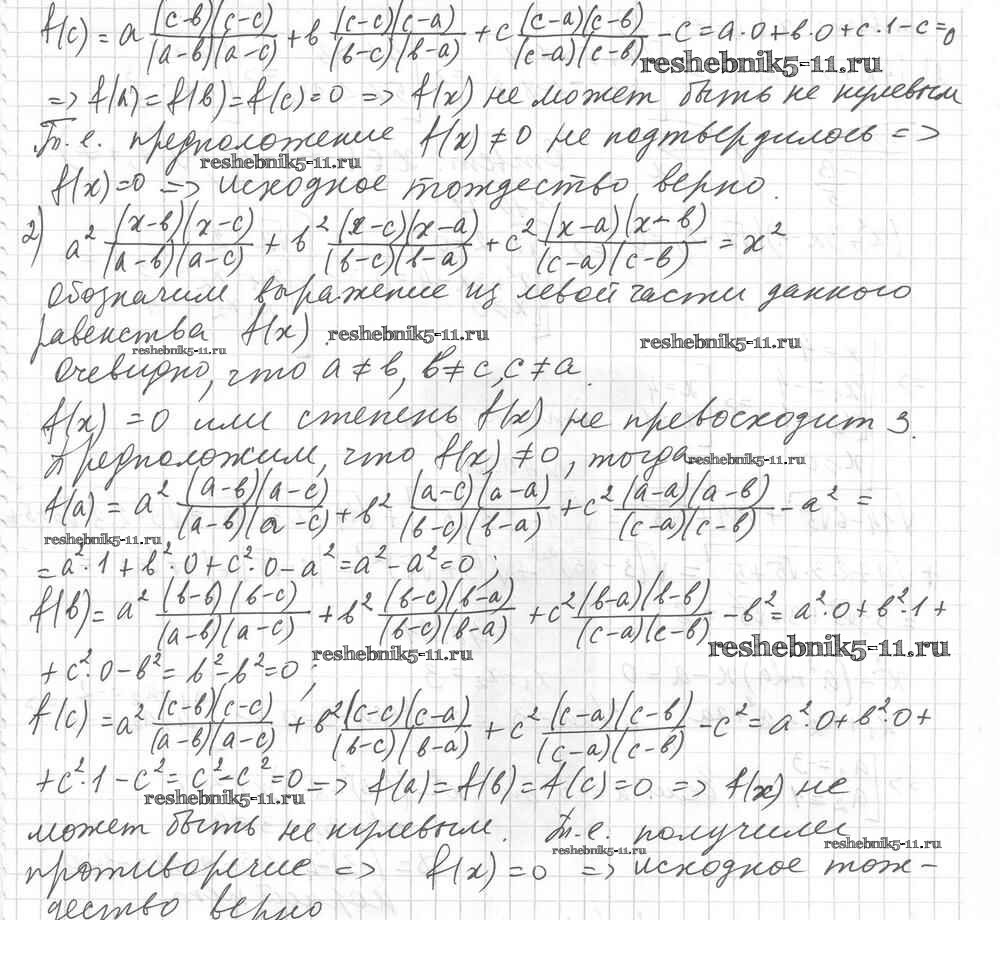 f(c) = a (c-в)(c-c)/(a-в)(a-c) + в (c-c)(c-a)/(в-c)(в-a) + c (c-a)(c-в)/(c-a)(c-в) - c = a·0+в·0+c·1-c=0
reshebnik5-11.ru
=> f(a)=f(в)=f(c)=0 => f(x) не может быть не нулевым
Т.е. предположение f(x)≠0 не подтвердилось =>
reshebnik5-11.ru
f(x)=0 => исходное тождество верно.
2) a² (x-в)(x-c)/(a-в)(a-c) + в² (x-c)(x-a)/(в-c)(в-a) + c² (x-a)(x-в)/(c-a)(c-в) = x²
Обозначим выражение из левой части данного
равенства f(x).
reshebnik5-11.ru
reshebnik5-11.ru
reshebnik5-11.ru
Очевидно, что a≠в, в≠c, c≠a.
f(x)=0 или степень f(x) не превосходит 3.
Предположим, что f(x)≠0, тогда
reshebnik5-11.ru
f(a) = a² (a-в)(a-c)/(a-в)(a-c) + в² (a-c)(a-a)/(в-c)(в-a) + c² (a-a)(a-в)/(c-a)(c-в) - a² =
reshebnik5-11.ru
= a²·1+в²·0+c²·0-a²=a²-a²=0;
f(в)= a² (в-в)(в-c)/(a-в)(a-c) + в² (в-c)(в-a)/(в-c)(в-a) + c² (в-a)(в-в)/(c-a)(c-в) - в² = a²·0+в²·1+
reshebnik5-11.ru
reshebnik5-11.ru
+ c²·0-в²= в²-в²=0;
f(c) = a² (c-в)(c-c)/(a-в)(a-c) + в² (c-c)(c-a)/(в-c)(в-a) + c² (c-a)(c-в)/(c-a)(c-в) - c² = a²·0+в²·0+
+ c²·1-c²= c²-c²=0 => f(a)=f(в)=f(c)=0 => f(x) не
reshebnik5-11.ru
может быть не нулевым. Т.е. получили
reshebnik5-11.ru
reshebnik5-11.ru
противоречие => f(x)=0 => исходное тож-
дество верно